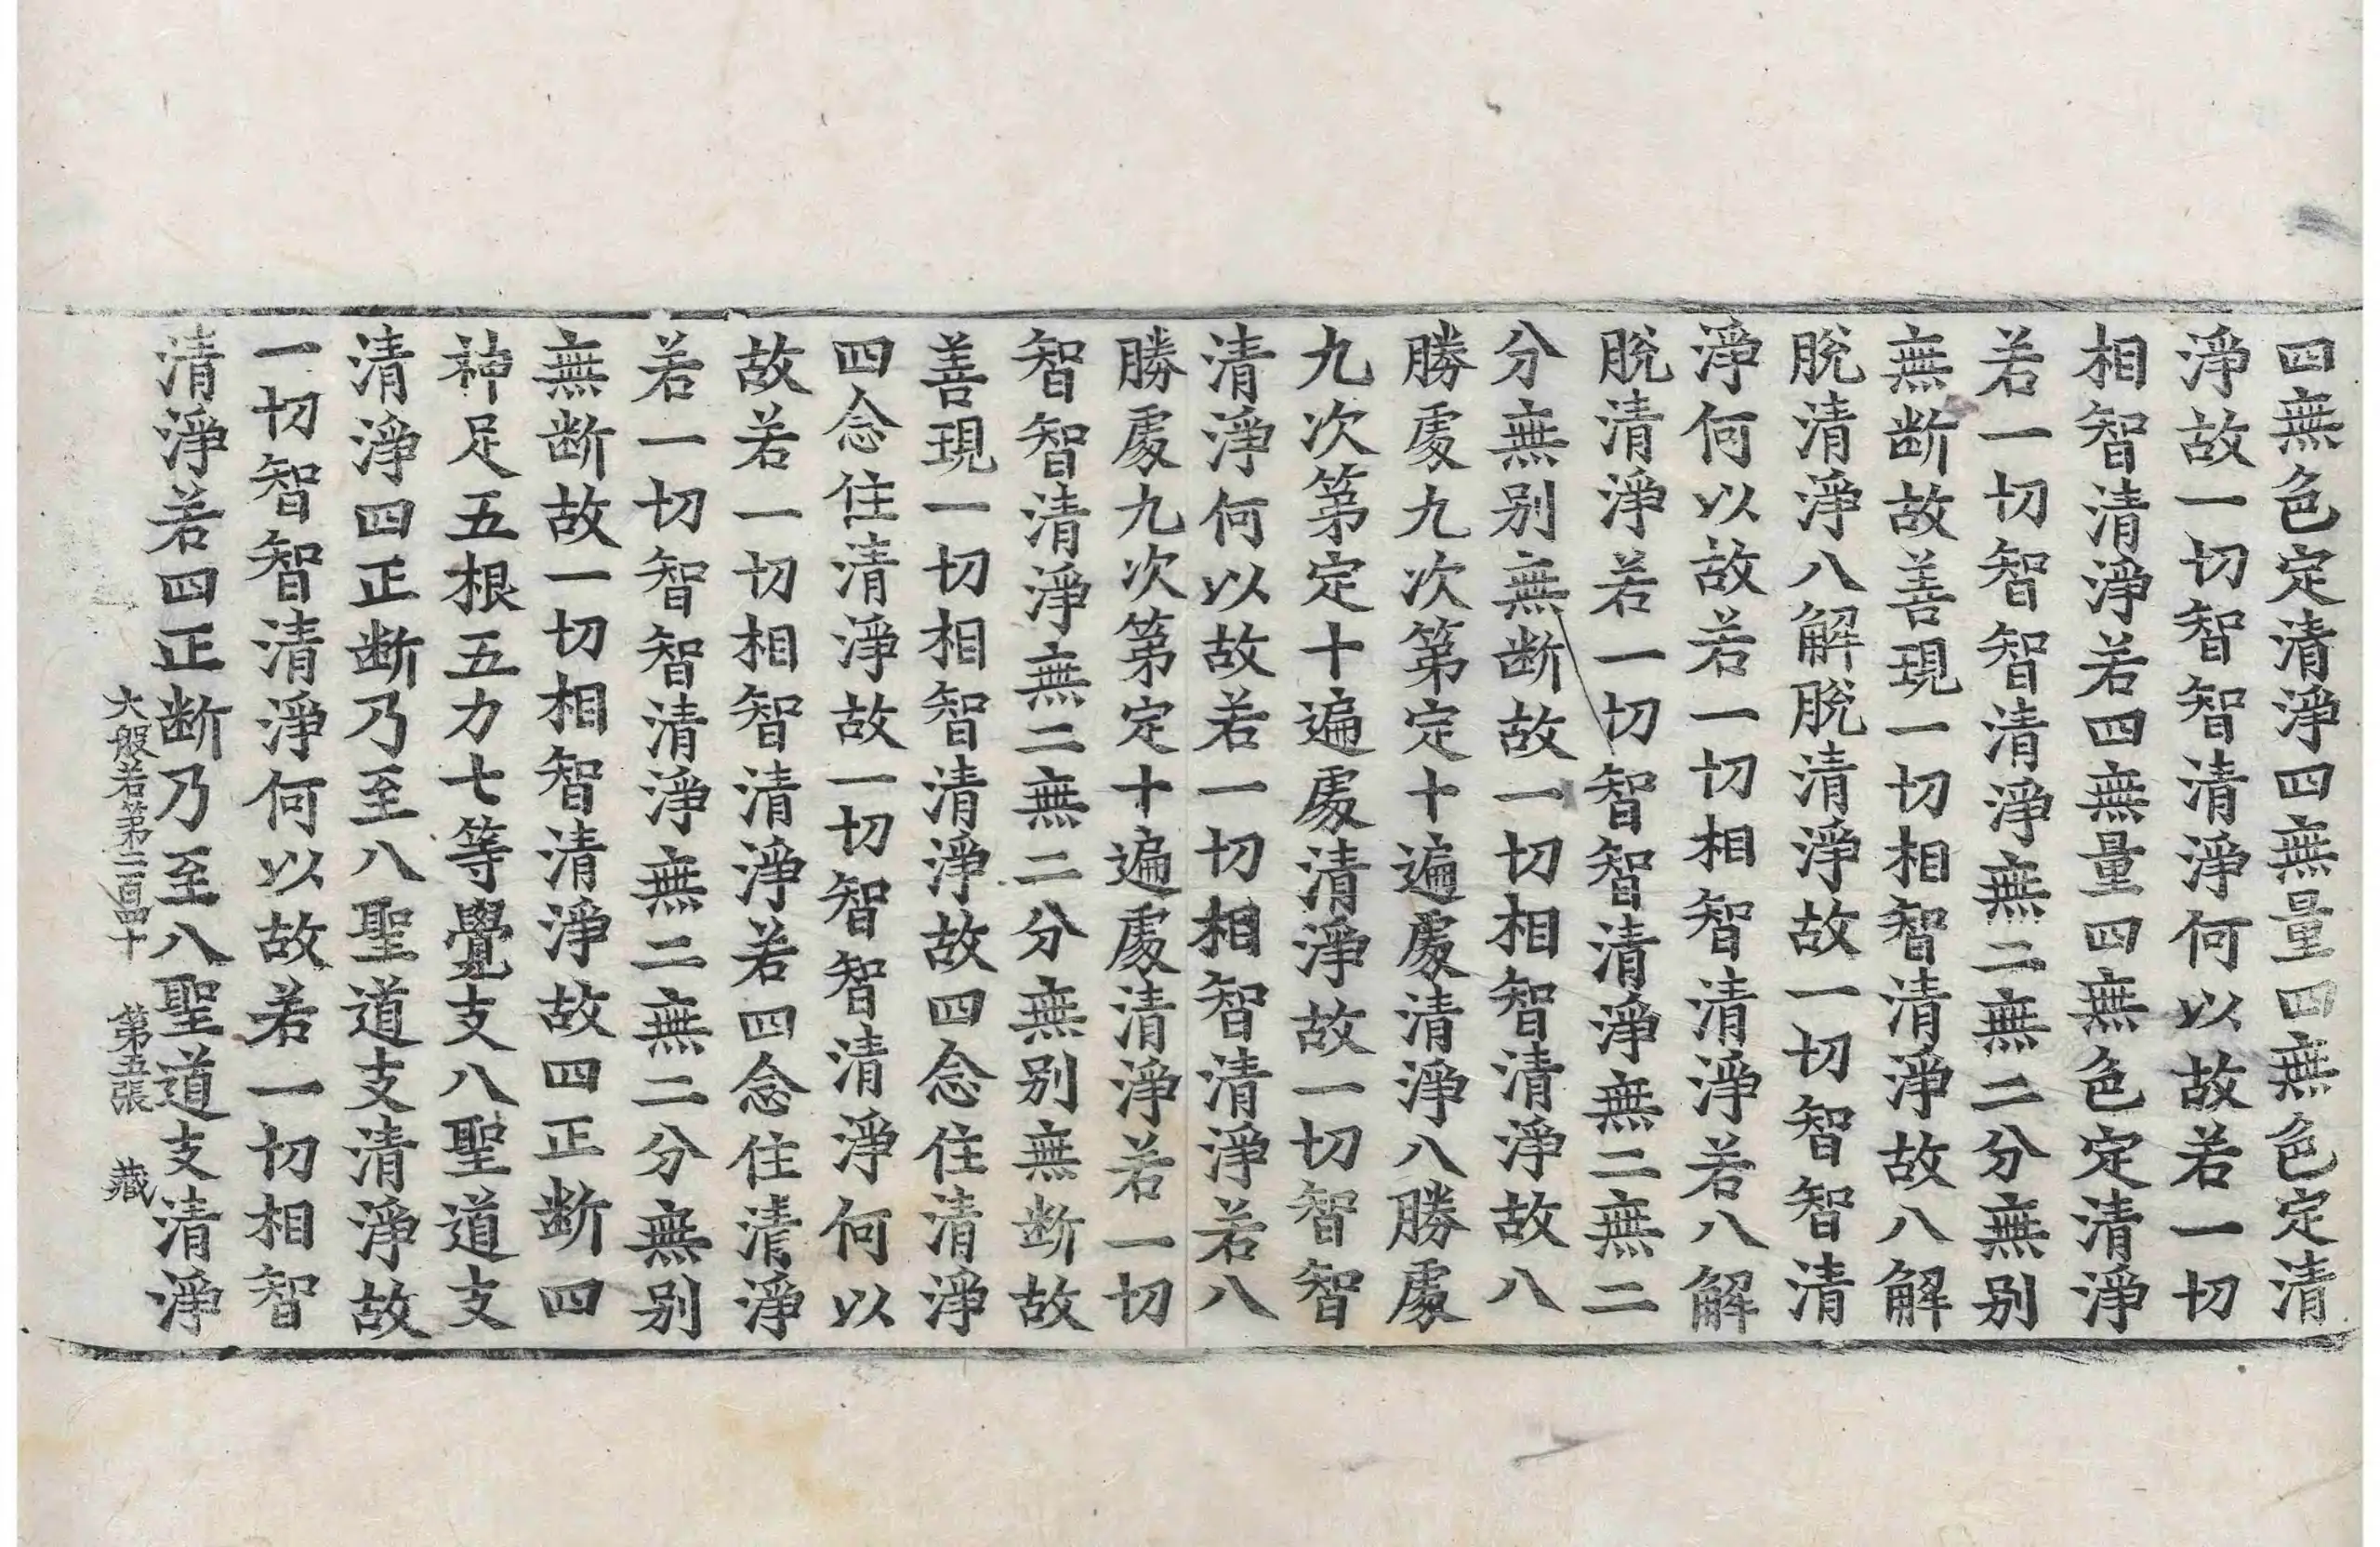 四無色定清淨四無量四無色定清
淨故一切智智清淨何以故若一切
相智清淨若四無量四無色定清淨
若一切智智清淨無二無二分無别
無断故善現一切相智清淨故八解
脫清淨八解脫清淨故一切智智清
淨何以故若一切相智清淨若八解
脫清淨若一切智智清淨無二無二
分無别無断故一切相智清淨故八
勝處九次第定十遍處清淨八勝處
九次第定十遍處清淨故一切智智
清淨何以故若一切相智清淨若八
勝處九次第定十遍處清淨若一切
智智清淨無二無二分無别無断故
善現一切相智清淨故四念住清淨
四念住清淨故一切智智清淨何以
故若一切相智清淨若四念住清淨
若一切智智清淨無二無二分無别
無断故一切相智清淨故四正断四
神足五根五力七等覺支八聖道支
清淨四正断乃至八聖道支清淨故
一切智智清淨何以故若一切相智
清淨若四正断乃至八聖道支清淨
大般若第二百四十 第五張 藏